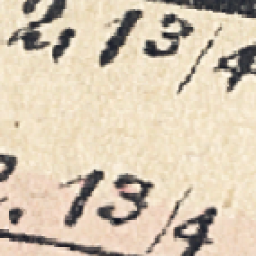 2, 13/4
2. 13/4